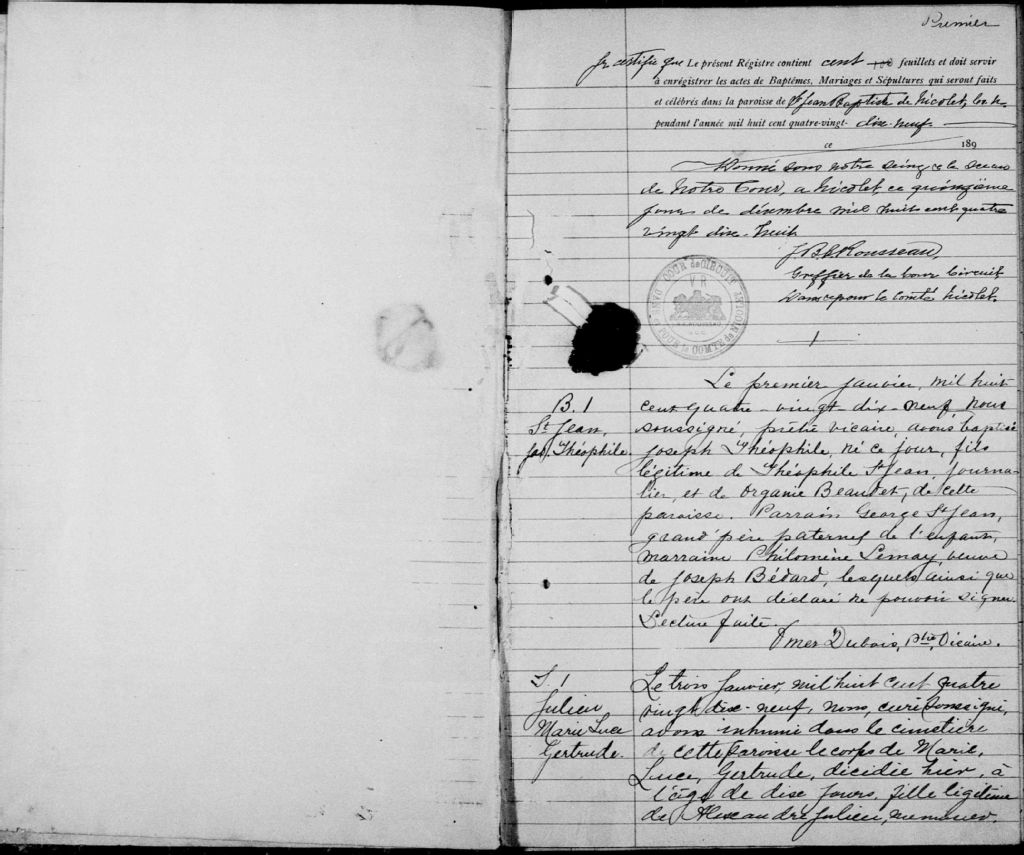 Premier
Je certifie que Le présent Régistre contient cent feuillets et doit servir
à enrégistrer les actes de Baptêmes, Mariages et Sépultures qui seront faits
et célébrés dans la paroisse de St Jean Baptiste de Nicolet,
pendant l'année mil huit cent quatre-vingt- dix-neuf.
ce 189
Donné sous notre seing et le sceau
de Notre Cour, a Nicolet, ce quinzième
jour de décembre mil huit cent quatre
vingt dix-huit
J B L Rousseau,
Greffier de la Cour Circuit
Dans et pour le Comté Nicolet.
COUR de CIRCUIT
DANS et POUR le COMTÉ de NICOLET
V R
Le premier janvier, mil huit
B. 1
cent quatre-vingt-dix-neuf, nous
St Jean,
soussigné, prêtre vicaire, avons baptisé
Jos. Théophile.
Joseph Théophile, né ce jour, fils
légitime de Théophile St Jean, journa-
lier, et de Organie Beaudet, de cette
paroisse. Parrain George St Jean,
grand'père paternel de l'enfant,
marraine Philomène Lemay, veuve
de Joseph Bédard, lesquels ainsi que
le père ont déclaré ne pouvoir signer.
Lecture faite.
Omer Dubois, Ptre, Vicaire.
S. 1
Le trois Janvier, mil huit cent quatre
Julien
vingt dix-neuf, nous, curé soussigné,
Marie Luce
avons inhumé dans le cimetière
Gertrude.
de cette paroisse le corps de Marie,
Luce, Gertrude, décédée hier, à
l'âge de dix jours, fille légitime
de Alexandre Julien, menuisier.